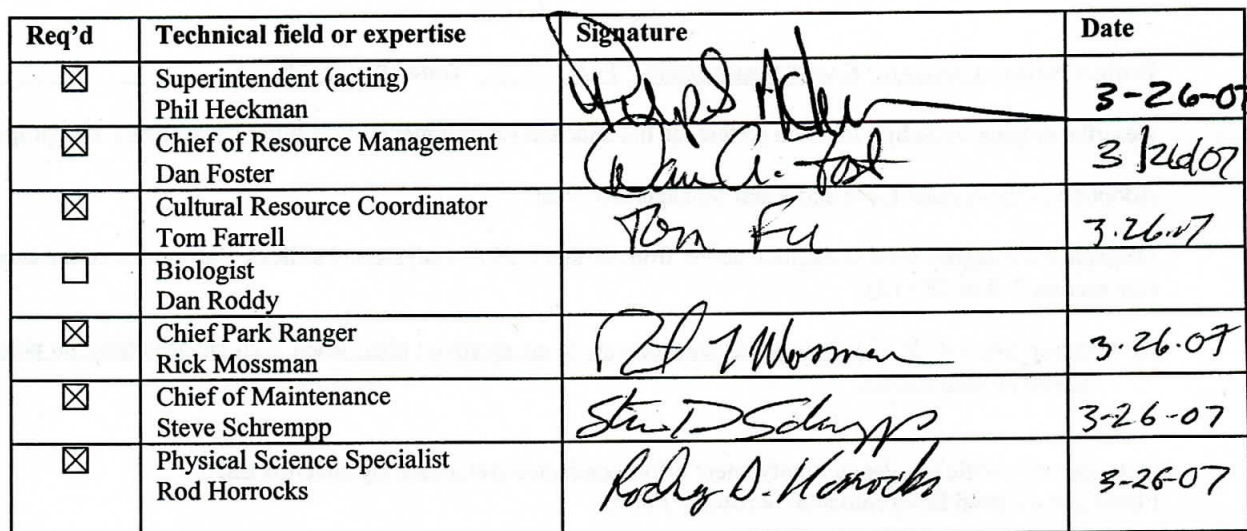 Req'd Technical field or expertise Signature Date
☒ Superintendent (acting)
Phil Heckman 3-26-07
☒ Chief of Resource Management
Dan Foster Dan A. Fost 3/26/07
☒ Cultural Resource Coordinator
Tom Farrell Tom 3.26.07
☐ Biologist
Dan Roddy
☒ Chief Park Ranger
Rick Mossman Mossman 3-26-07
☒ Chief of Maintenance
Steve Schrempp Steve D Schrempp 3-26-07
☒ Physical Science Specialist
Rod Horrocks Rodney D. Horrocks 3-26-07